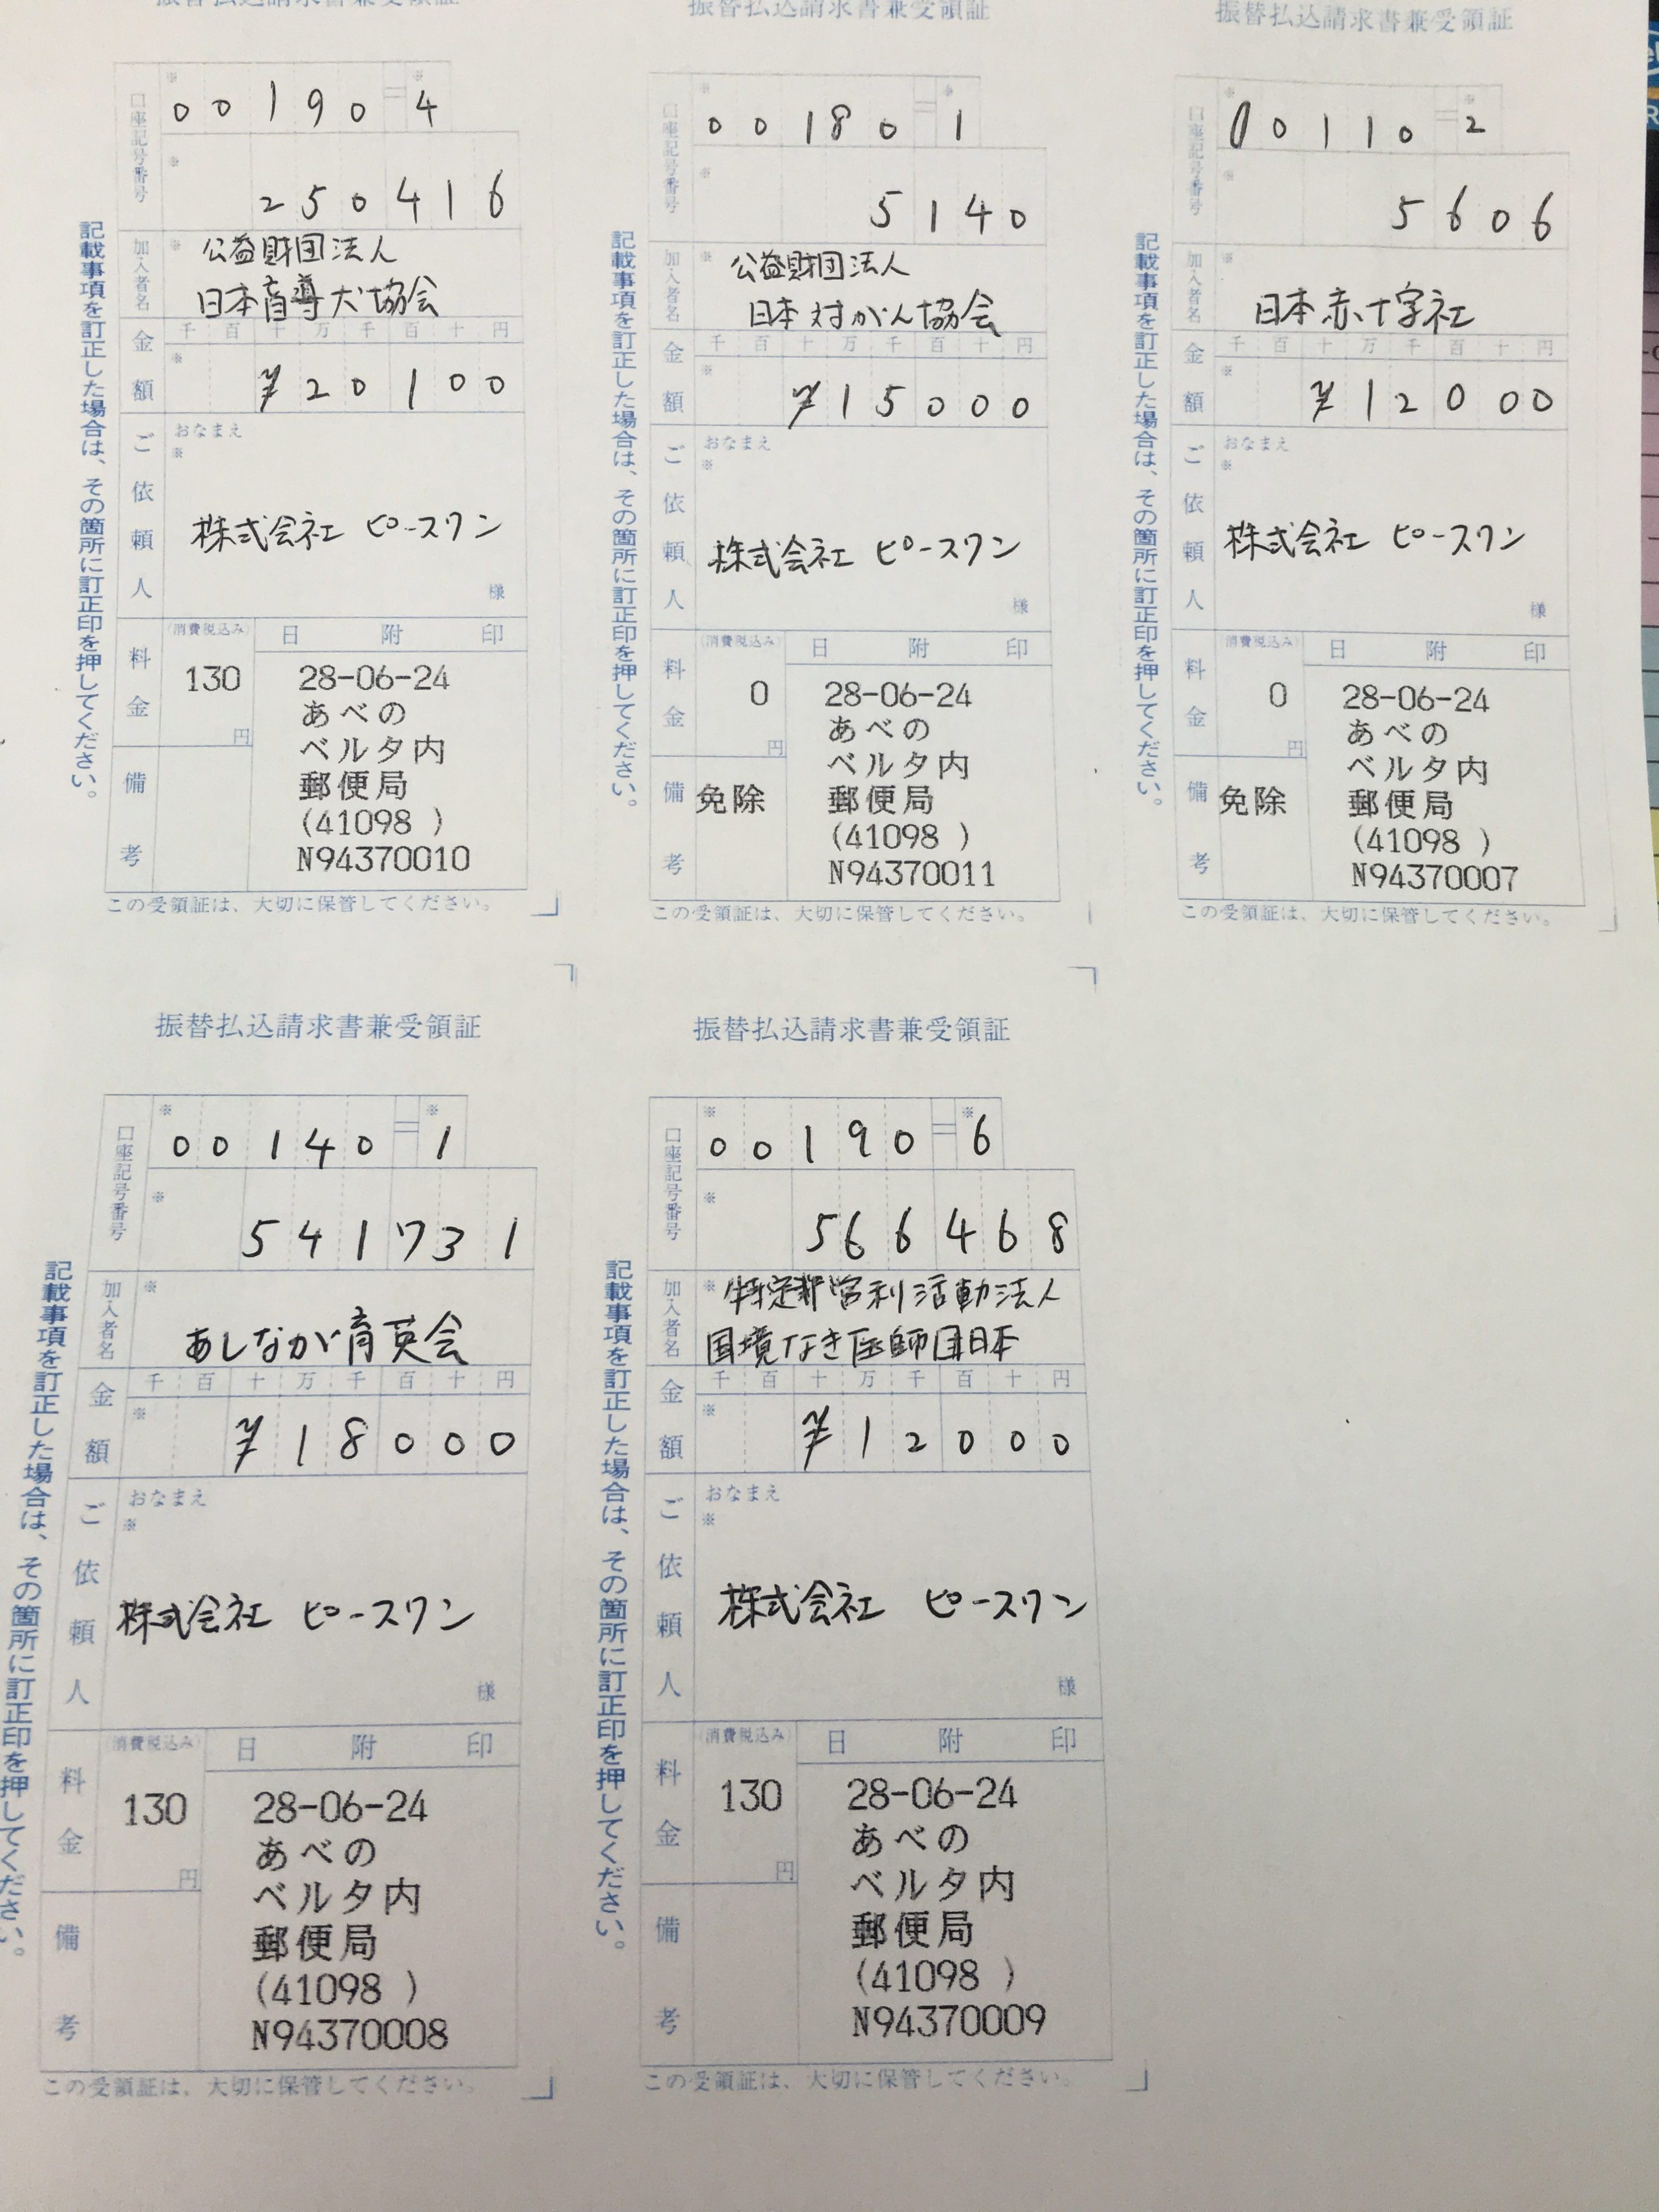 振替払込請求書兼受領証
口座記号番号
00190=4
250416
加入者名
公益財団法人
日本盲導犬協会
金額
千百十万千百十円
¥20100
ご依頼人
おなまえ
株式会社 ピースワン
様
料金
(消費税込み)
130
円
日附印
28-06-24
あべの
ベルタ内
郵便局
(41098 )
N94370010
備考
記載事項を訂正した場合は、その箇所に訂正印を押してください。
この受領証は、大切に保管してください。
振替払込請求書兼受領証
口座記号番号
00180=1
5140
加入者名
公益財団法人
日本対がん協会
金額
千百十万千百十円
¥15000
ご依頼人
おなまえ
株式会社 ピースワン
様
料金
(消費税込み)
0
円
日附印
28-06-24
あべの
ベルタ内
郵便局
(41098 )
N94370011
備考
免除
記載事項を訂正した場合は、その箇所に訂正印を押してください。
この受領証は、大切に保管してください。
振替払込請求書兼受領証
口座記号番号
00110=2
5606
加入者名
日本赤十字社
金額
千百十万千百十円
¥12000
ご依頼人
おなまえ
株式会社 ピースワン
様
料金
(消費税込み)
0
円
日附印
28-06-24
あべの
ベルタ内
郵便局
(41098 )
N94370007
備考
免除
記載事項を訂正した場合は、その箇所に訂正印を押してください。
この受領証は、大切に保管してください。
振替払込請求書兼受領証
口座記号番号
00140=1
541731
加入者名
あしなが育英会
金額
千百十万千百十円
¥18000
ご依頼人
おなまえ
株式会社 ピースワン
様
料金
(消費税込み)
130
円
日附印
28-06-24
あべの
ベルタ内
郵便局
(41098 )
N94370008
備考
記載事項を訂正した場合は、その箇所に訂正印を押してください。
この受領証は、大切に保管してください。
振替払込請求書兼受領証
口座記号番号
00190=6
566468
加入者名
特定非営利活動法人
国境なき医師団日本
金額
千百十万千百十円
¥12000
ご依頼人
おなまえ
株式会社 ピースワン
様
料金
(消費税込み)
130
円
日附印
28-06-24
あべの
ベルタ内
郵便局
(41098 )
N94370009
備考
記載事項を訂正した場合は、その箇所に訂正印を押してください。
この受領証は、大切に保管してください。